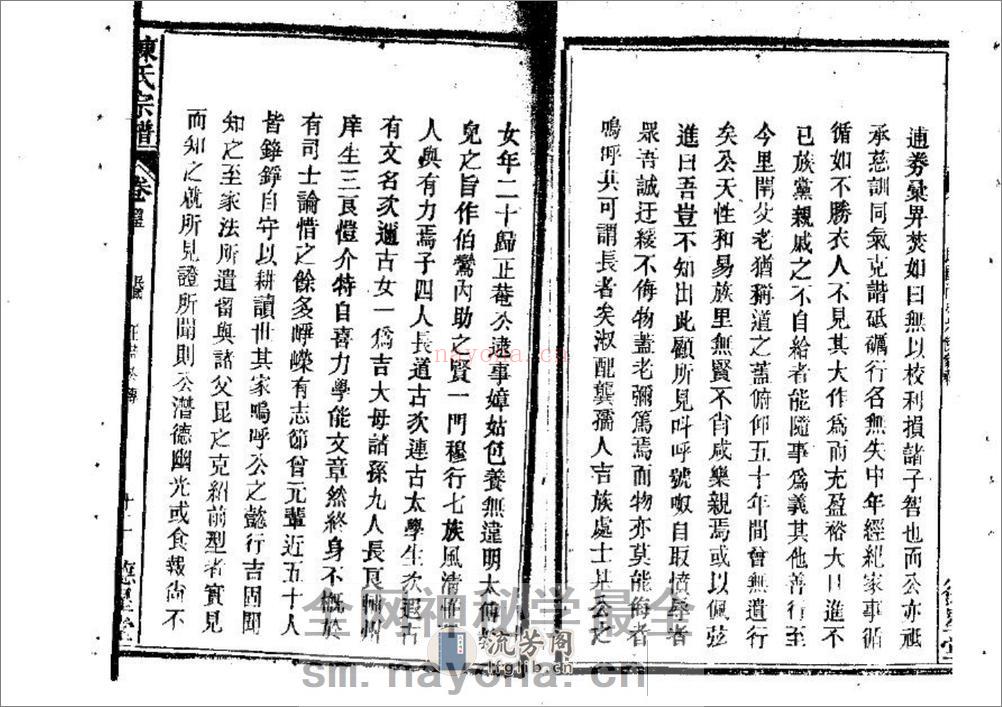 逋券稾畀焚如曰無以校利損諸子智也而公亦祗
承慈訓同氣克諧砥礪行名無失中年經紀家事循
循如不勝衣人不見其大作為而充盈裕大日進不
已族黨親戚之不自給者能隨事為義其他善行至
今里閈父老猶稱道之蓋俯仰五十年間曾無遺行
矣公天性和易族里無賢不肖咸樂親焉或以佩弦
進曰吾豈不知出此顧所見叫呼號呶自取憤辱者
眾吾誠迂緩不侮物蓋老彌篤焉而物亦莫能侮者
嗚呼其可謂長者矣淑配龔孺人吉族處士其公之
女年二十歸正菴公逮事嫜姑色養無違明大傅
兒之旨作伯鸞內助之賢一門穆行七族風清
人與有力焉子四人長道古次連古太學生次遐古
有文名次邇古女一為吉大母諸孫九人長艮
庠生三艮愷介特自喜力學能文章然終身不慨於
有司士論惜之餘多崢嶸有志節曾元輩近五十人
皆錚錚自守以耕讀世其家嗚呼公之懿行吉固聞
知之至家法所遺留與諸父昆之克紹前型者實見
而知之就所見證所聞則公潛德幽光或食報尚不
陳氏宗譜
卷
傳
十一
堂
全网神秘学最全
nayona.cn
流芳阁
lfglib.cn
sm.nayona.cn